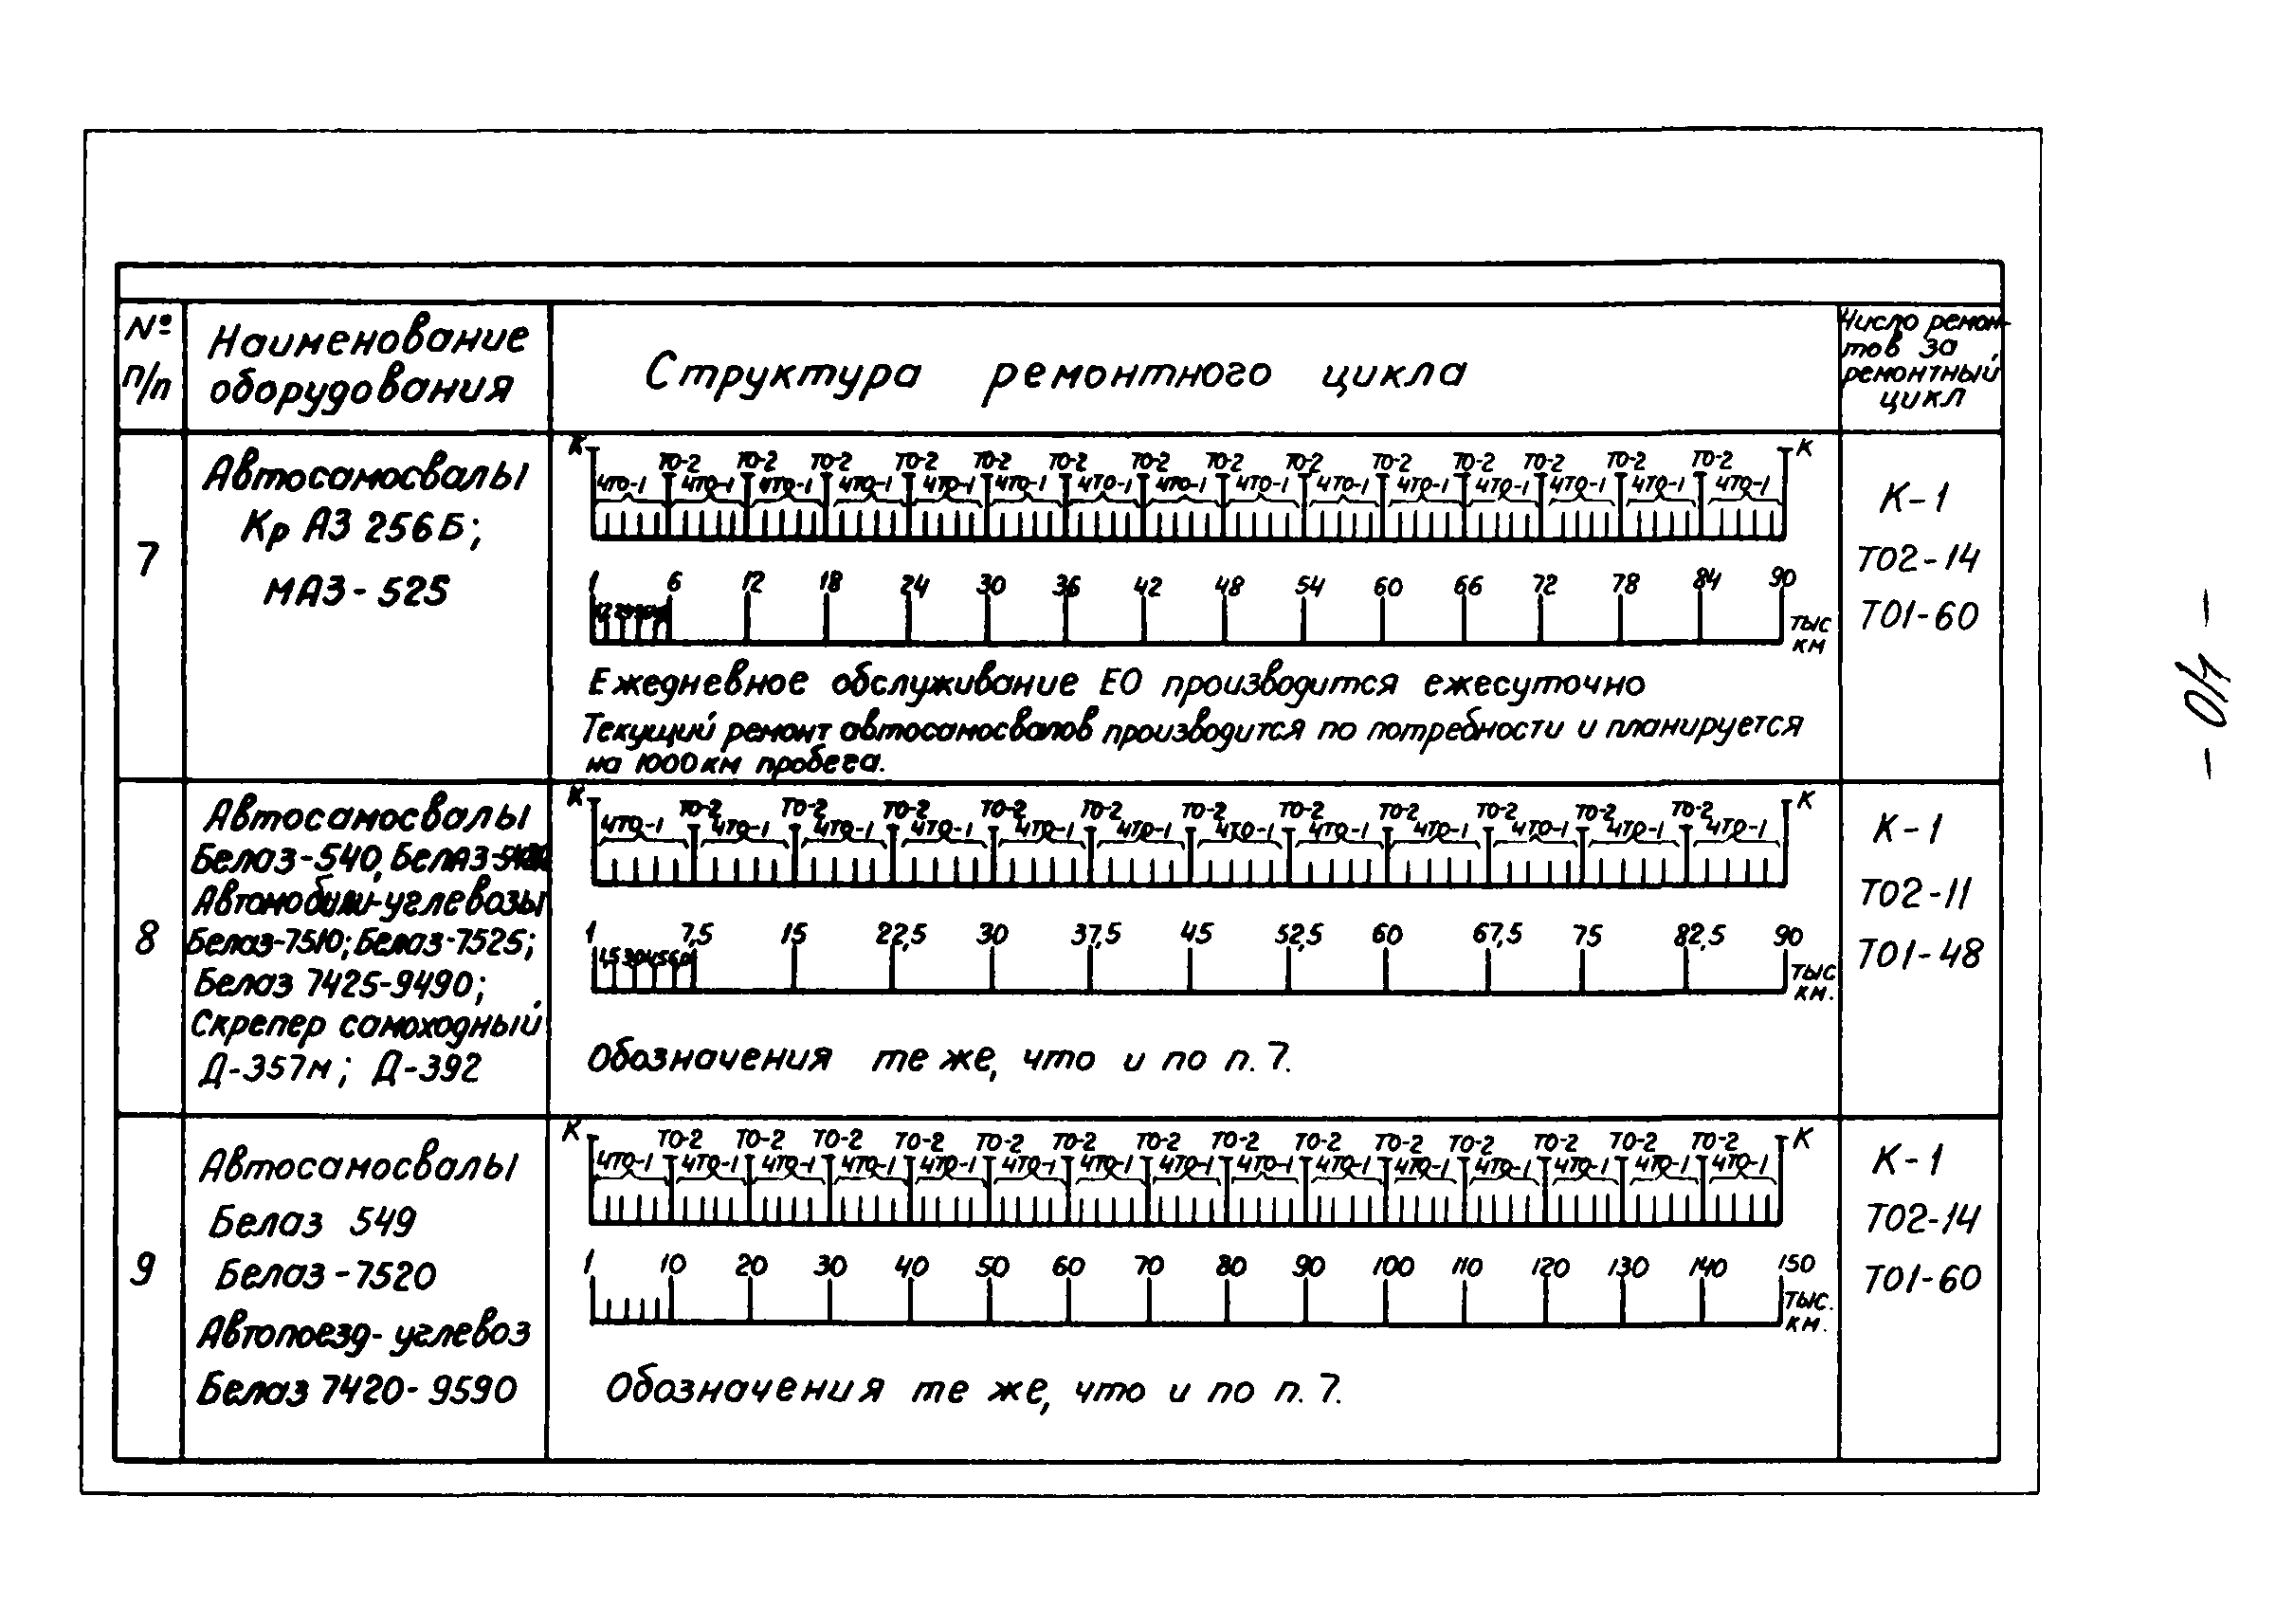 № п/п
Наименование
оборудования
Структура ремонтного цикла
Число ремон-
тов за
ремонтный
цикл
7
Автосамосвалы
КрАЗ 256Б;
МАЗ-525
К ТО-2 ТО-2 ТО-2 ТО-2 ТО-2 ТО-2 ТО-2 ТО-2 ТО-2 ТО-2 ТО-2 ТО-2 ТО-2 ТО-2 К
4ТО-1 4ТО-1 4ТО-1 4ТО-1 4ТО-1 4ТО-1 4ТО-1 4ТО-1 4ТО-1 4ТО-1 4ТО-1 4ТО-1 4ТО-1 4ТО-1 4ТО-1
1 6 12 18 24 30 36 42 48 54 60 66 72 78 84 90
тыс
км
Ежедневное обслуживание ЕО производится ежесуточно
Текущий ремонт автосамосвалов производится по потребности и планируется
на 1000 км пробега.
К-1
ТО2-14
ТО1-60
8
Автосамосвалы
Белаз-540, Белаз-
Автомобили-углевозы
Белаз-7510; Белаз-7525;
Белаз 7425-9490;
Скрепер самоходный
Д-357м; Д-392
К ТО-2 ТО-2 ТО-2 ТО-2 ТО-2 ТО-2 ТО-2 ТО-2 ТО-2 ТО-2 ТО-2 К
4ТО-1 4ТО-1 4ТО-1 4ТО-1 4ТО-1 4ТО-1 4ТО-1 4ТО-1 4ТО-1 4ТО-1 4ТО-1 4ТО-1
1 7,5 15 22,5 30 37,5 45 52,5 60 67,5 75 82,5 90
1,5 3,0 4,5 6,0
тыс
км.
Обозначения те же, что и по п. 7.
К-1
ТО2-11
ТО1-48
9
Автосамосвалы
Белаз 549
Белаз-7520
Автопоезд-углевоз
Белаз 7420-9590
К ТО-2 ТО-2 ТО-2 ТО-2 ТО-2 ТО-2 ТО-2 ТО-2 ТО-2 ТО-2 ТО-2 ТО-2 ТО-2 ТО-2 К
4ТО-1 4ТО-1 4ТО-1 4ТО-1 4ТО-1 4ТО-1 4ТО-1 4ТО-1 4ТО-1 4ТО-1 4ТО-1 4ТО-1 4ТО-1 4ТО-1 4ТО-1
1 10 20 30 40 50 60 70 80 90 100 110 120 130 140 150
тыс.
км.
Обозначения те же, что и по п. 7.
К-1
ТО2-14
ТО1-60
- 40 -